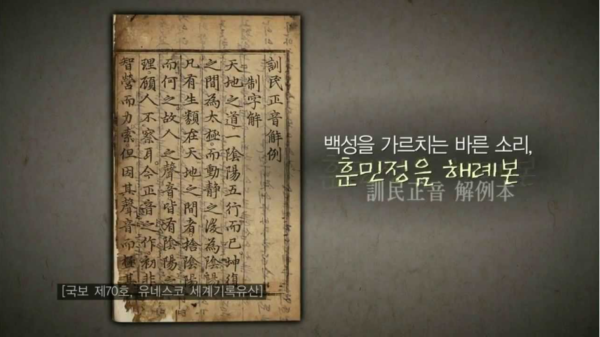 訓民正音解例
制字解
天地之道一陰陽五行而已坤復
之間為太極而動静之後為陰陽
凡有生類在天地之間者捨陰陽
而何之故人之聲音皆有陰陽之
理顧人不察耳今正音之作初非
智營而力索但因其聲音而極其
백성을 가르치는 바른 소리,
훈민정음 해례본
訓民正音 解例本
[국보 제70호, 유네스코 세계기록유산]